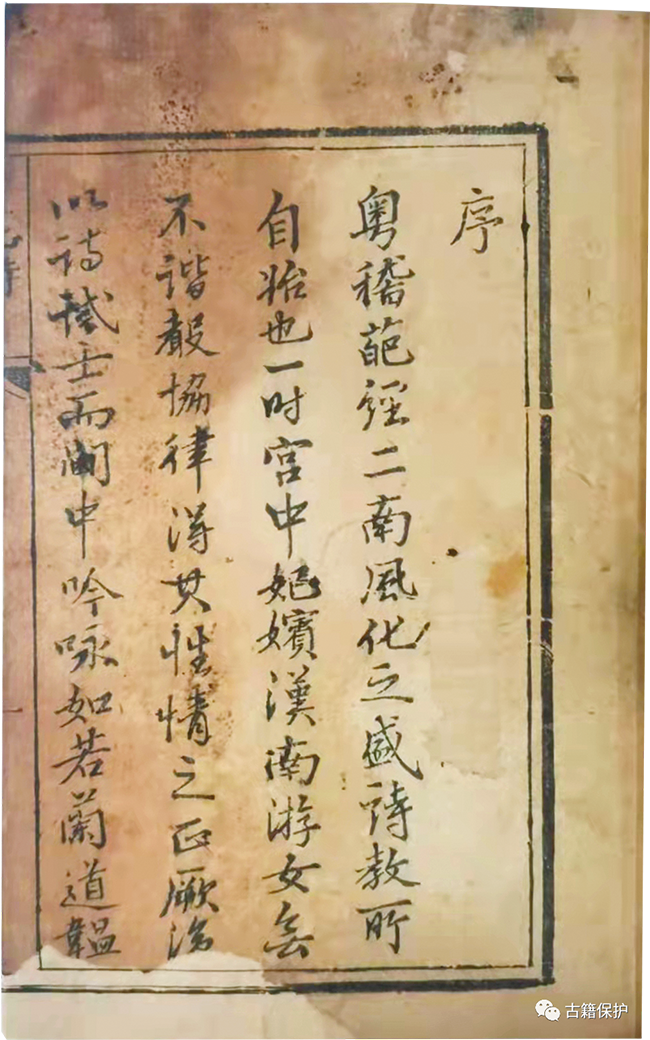 序
粤稽葩經二南風化之盛詩教所
自始也一时宮中妃嬪漢南游女無
不諧聲協律得其性情之正厥後
以詩試士而閨中吟咏如若蘭道韞
古籍保护